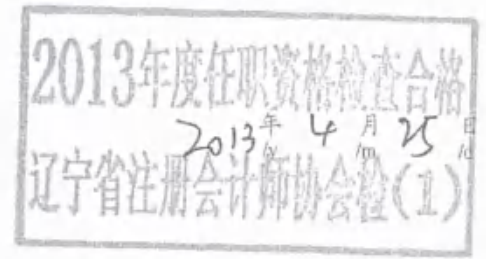 2013年度任职资格检查合格
2013年 4月 25日
/y /m /d
辽宁省注册会计师协会检(1)